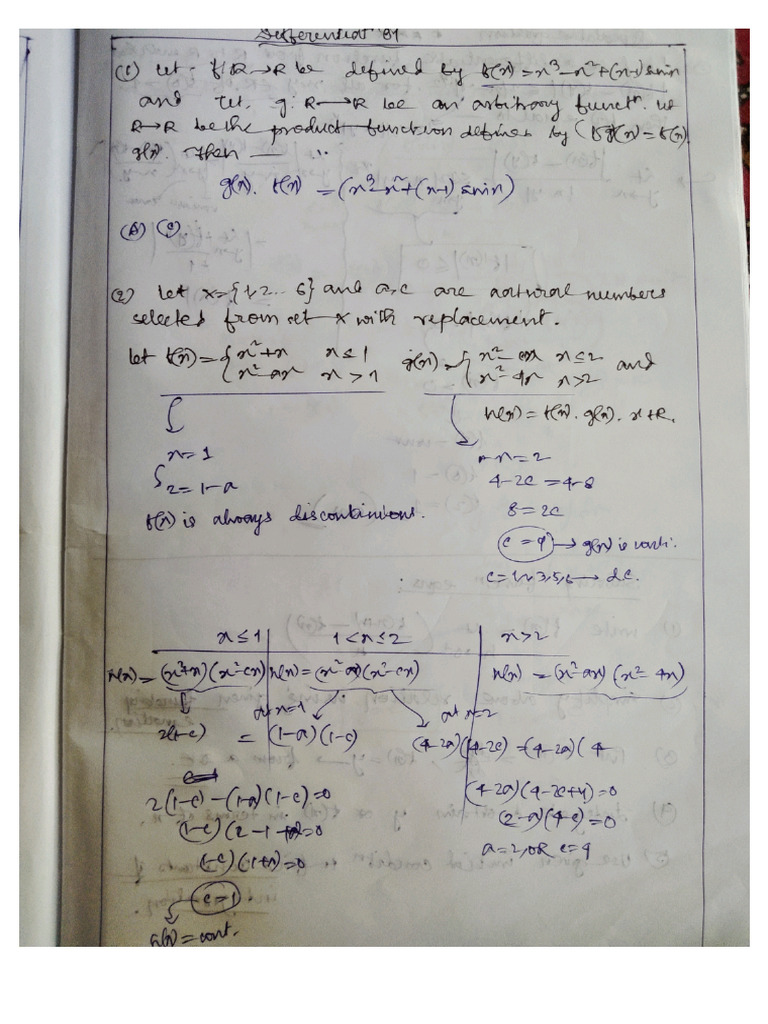 Differential 91
(1) Let f: R→R be defined by f(x) = x³-x²+(x-1) sinx
and let g: R→R be an arbitrary functⁿ. Let
R→R be the product function defined by (fg)(x) = f(x).
g(x). Then — ...
g(x). f(x) = (x³-x²+(x-1) sinx)
(A) (C).
(2) Let x={1,2... 6} and a,c are natural numbers
selected from set x with replacement.
let f(x) = { x²+x x≤1 g(x) = { x²-cx x≤2 and
x²-ax x>1 x²-4x x>2
h(x) = f(x). g(x). x∈R.
x=1
2=1-a
f(x) is always discontinuous.
x=2
4-2c = 4-8
8=2c
c=4 → g(x) is conti.
c=1,2,3,5,6 → d.c.
x≤1 1<x≤2 x>2
h(x) = (x²+x)(x²-cx) h(x) = (x²-ax)(x²-cx) h(x) = (x²-ax)(x²-4x)
at x=1 at x=2
2(1-c) = (1-a)(1-c) (4-2a)(4-2c) = (4-2a)(4
2(1-c) - (1-a)(1-c) =0 (4-2a)(4-2c+4)=0
(1-c)(2-1+a)=0 (2-a)(4-c)=0
(1-c)(1+a)=0 a=2, OR c=4
c=1
h(x) = cont.